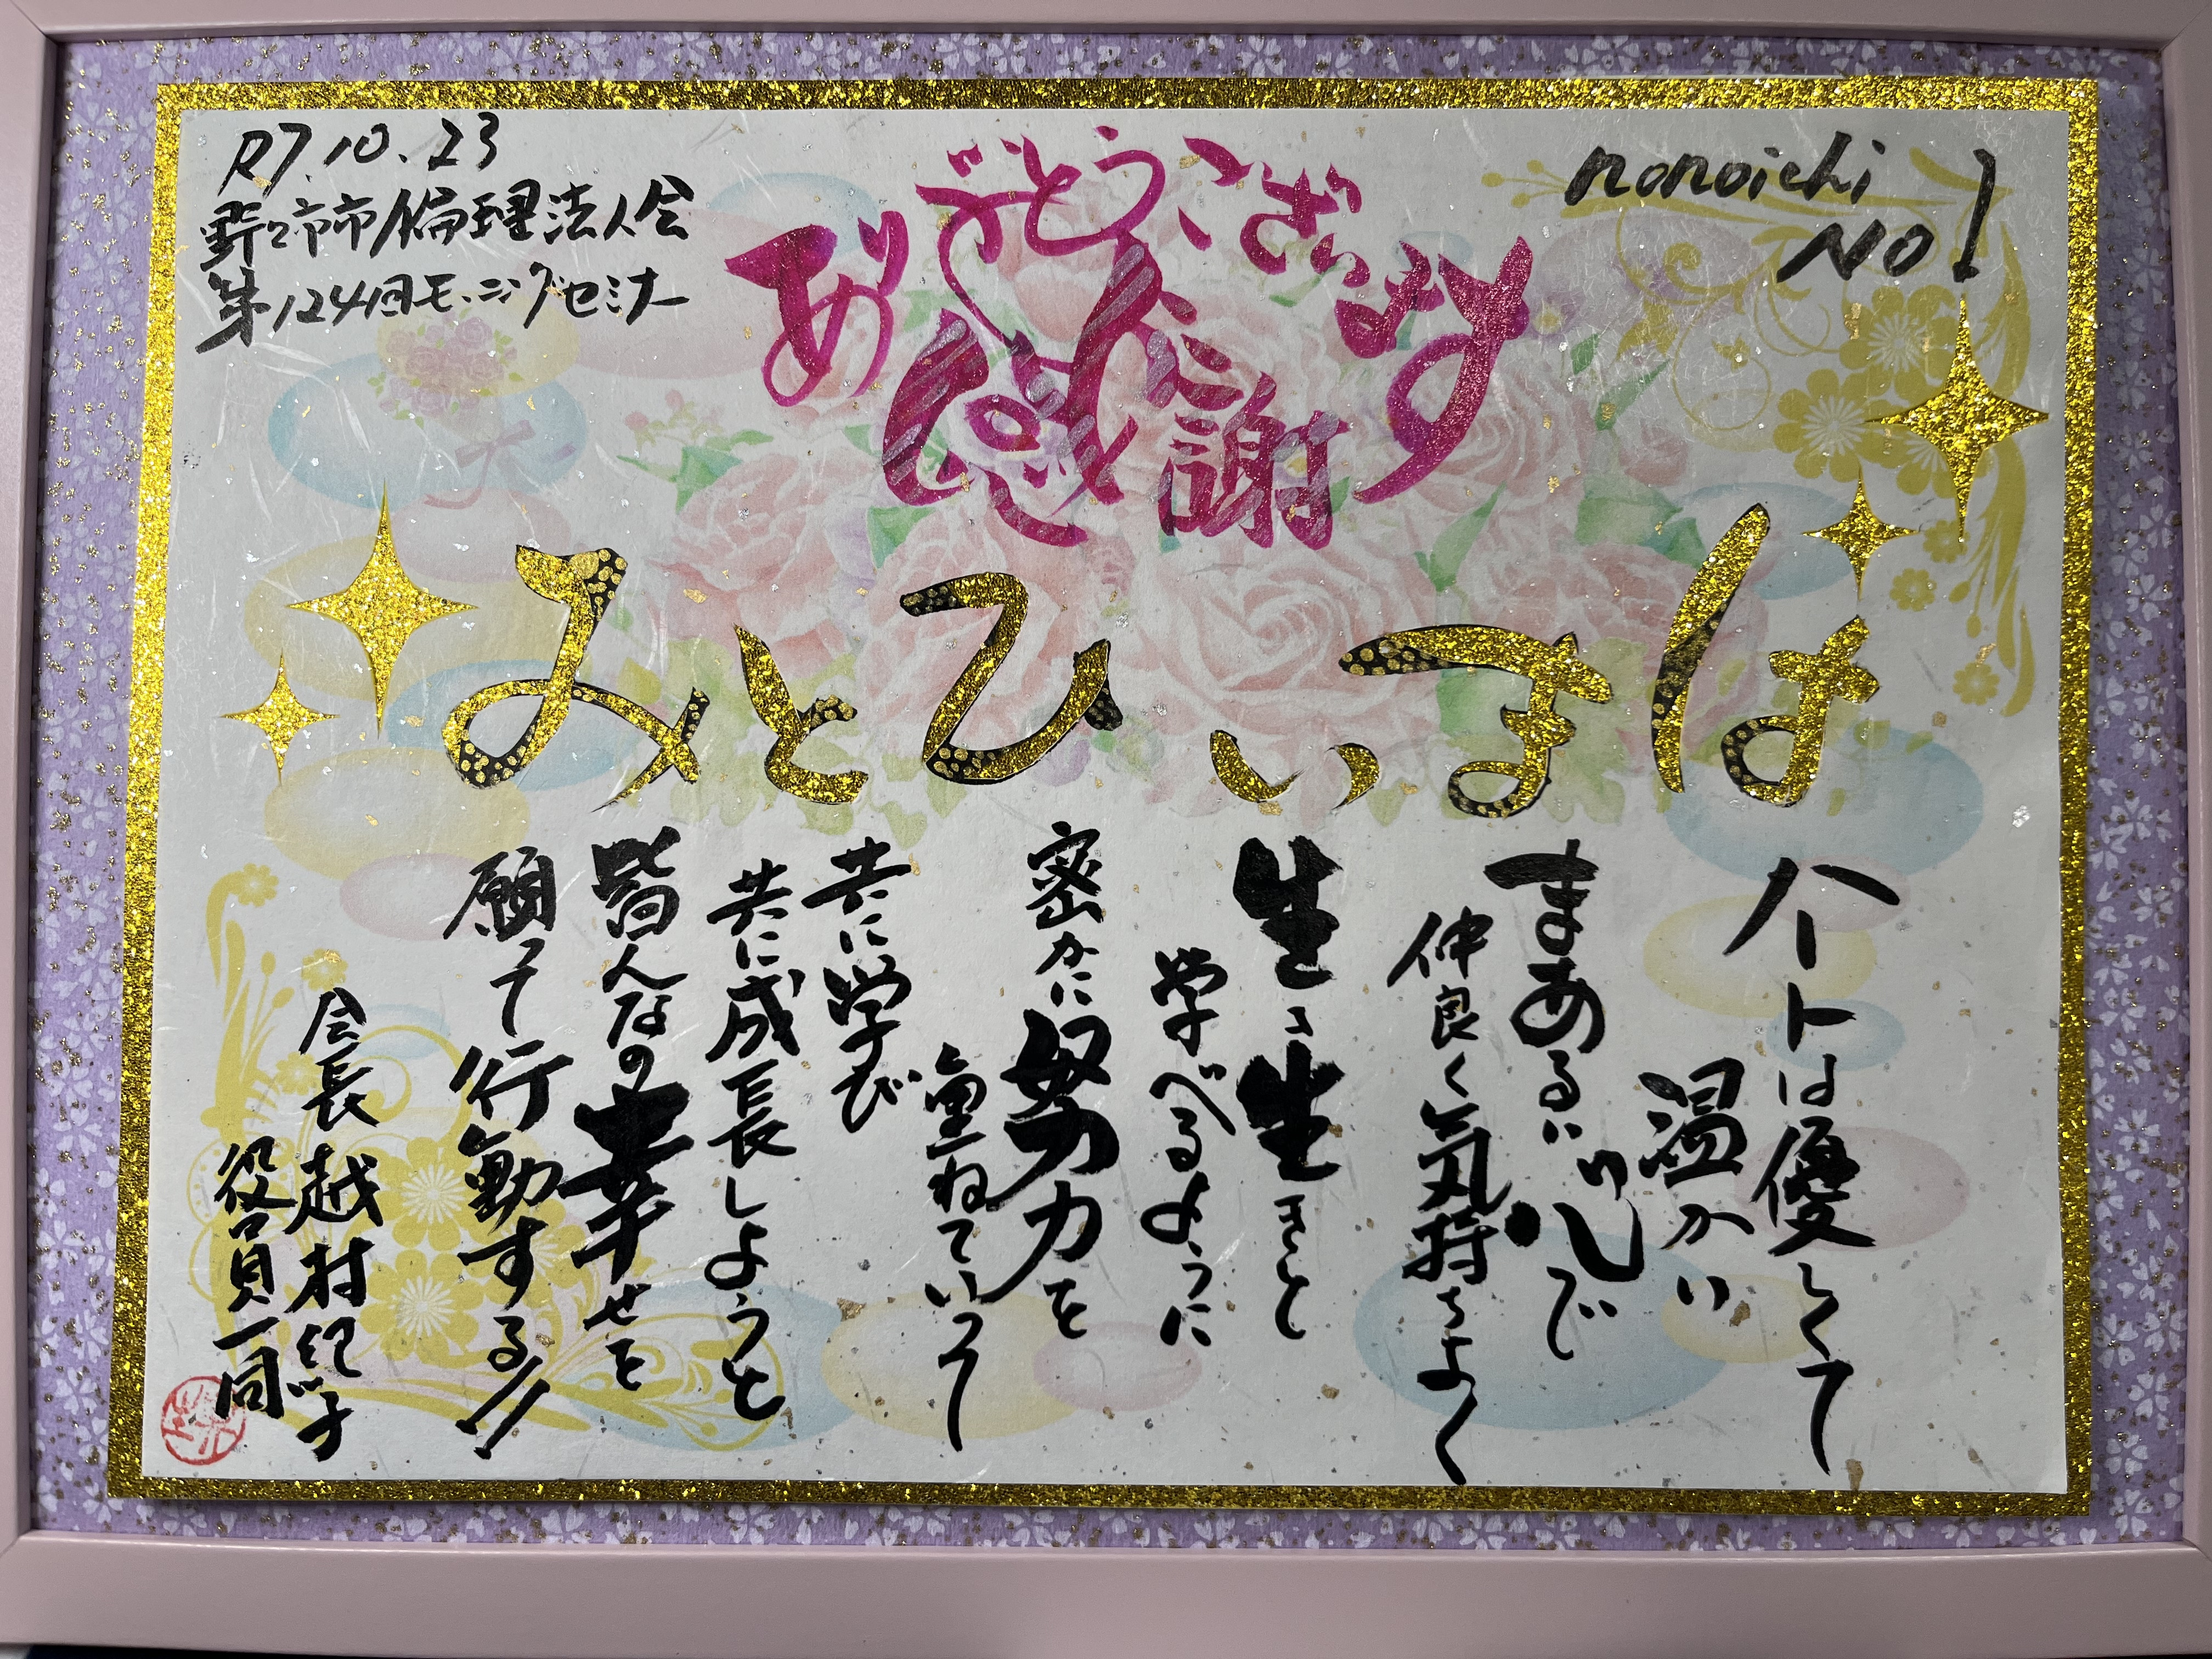 R7.10.23
野々市市倫理法人会
第124回モーニングセミナー
nonoichi
NO1
ありがとうございます
感謝
はまいひとみ
ハートは優しくて
温かい
まあるい心で
仲良く気持ちよく
生き生きと
学べるように
密かに努力を
重ねていって
共に学び
共に成長しようと
皆んなの幸せを
願って行動する!!
会長 越村紀子
役員一同